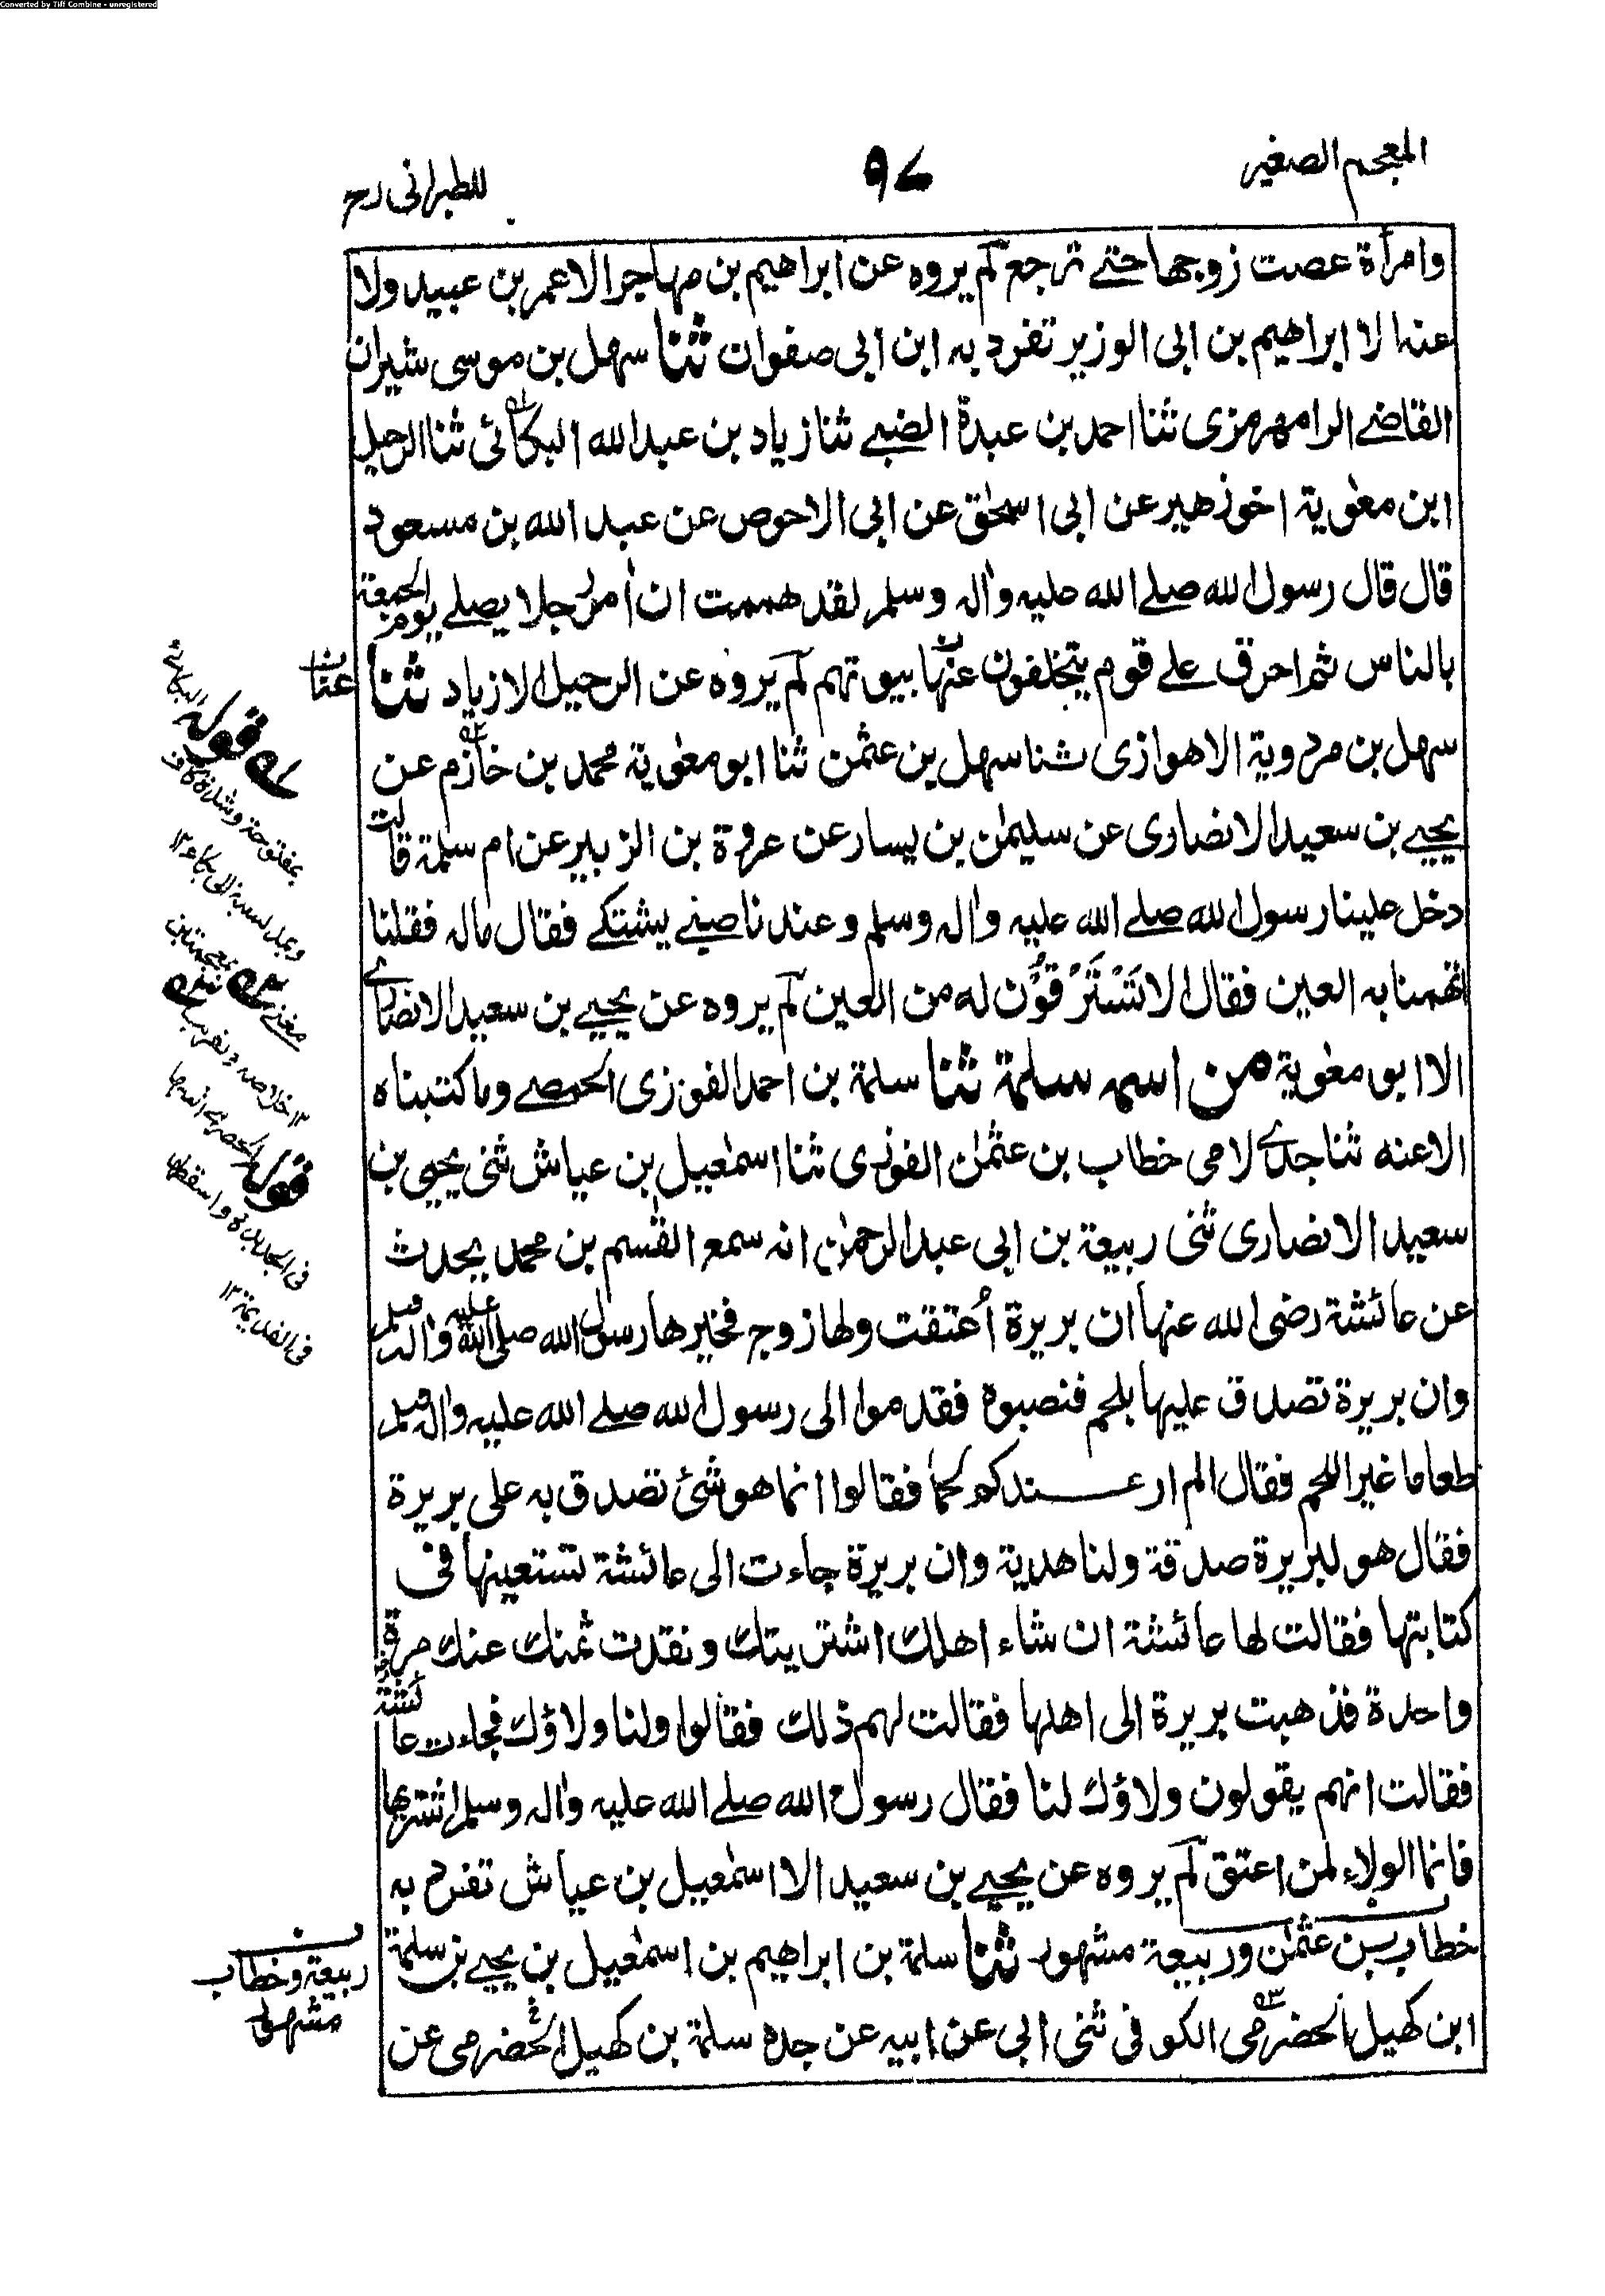 Converted by Tiff Combine - unregistered
المعجم الصغير
٩٧
للطبرانی رح
وامرأة عصت زوجها حتے ترجع لم يروه عن ابراهيم بن مهاجر الا عمر بن عبيد ولا
عنه الا ابراهيم بن ابى الوزير تفرد به ابن ابى صفوان ثنا سهل بن موسى شيران
القاضے الرامهرمزى ثنا احمد بن عبدة الضبے ثنا زياد بن عبد الله البكائى ثنا الرحيل
ابن معٰوية اخو زهير عن ابى اسحٰق عن ابى الاحوص عن عبد الله بن مسعود
قال قال رسول الله صلے الله عليه واٰله وسلم لقد هممت ان اٰمر رجلا يصلے يوم الجمعة
بالناس ثم احرق علے قوم يتخلفون عنها بيوتهم لم يروه عن الرحيل الا زياد ثنا
سهل بن مردوية الاهوازى ثنا سهل بن عثمٰن ثنا ابو معٰوية محمد بن خازم عن
يحيے بن سعيد الانصارى عن سليمٰن بن يسار عن عروة بن الزبير عن ام سلمة قالت
دخل علينا رسول الله صلے الله عليه واٰله وسلم وعندنا صبے يشتكے فقال ماله فقلنا
اتهمنا به العين فقال الا تَسْتَرْقُوْن له من العين لم يروه عن يحيے بن سعيد الانصارے
الا ابو معٰوية من اسمه سلمة ثنا سلمة بن احمد الفوزى الحمصے وما كتبناه
الا عنه ثنا جدے لامى خطاب بن عثمٰن الفوزى ثنا اسمٰعيل بن عياش ثنى يحيى بن
سعيد الانصارى ثنى ربيعة بن ابى عبد الرحمٰن انه سمع القٰسم بن محمد يحدث
عن عائشة رضى الله عنها ان بريرة أعتقت ولها زوج فخيرها رسول الله صلى الله عليه واٰله وسلم
وان بريرة تصدق عليها بلحم فنصبوه فقدموا الى رسول الله صلے الله عليه واٰله وسلم
طعاما غير اللحم فقال الم ار عندكم لحما فقالوا انما هو شئ تصدق به على بريرة
فقال هو لبريرة صدقة ولنا هدية وان بريرة جاءت الى عائشة تستعينها فى
كتابتها فقالت لها عائشة ان شاء اهلك اشتريتك ونقدت ثمنك عنك مرة
واحدة فذهبت بريرة الى اهلها فقالت لهم ذلك فقالوا ولنا ولاؤك فجاءت عائشة
فقالت انهم يقولون ولاؤك لنا فقال رسول الله صلے الله عليه واٰله وسلم اشتريها
فانما الولاء لمن اعتق لم يروه عن يحيے بن سعيد الا اسمٰعيل بن عياش تفرد به
خطاب بن عثمٰن وربيعة مشهور ثنا سلمة بن ابراهيم بن اسمٰعيل بن يحيے بن سلمة
ابن كهيل الحضرمى الكوفى ثنى ابى عن ابيه عن جده سلمة بن كهيل الحضرمى عن
قوله البكائى
بمفتوحة وشدة كاف
قوله
فى الجديدة واسقطها
فى القديمة ١٢
ربيعة وخطاب